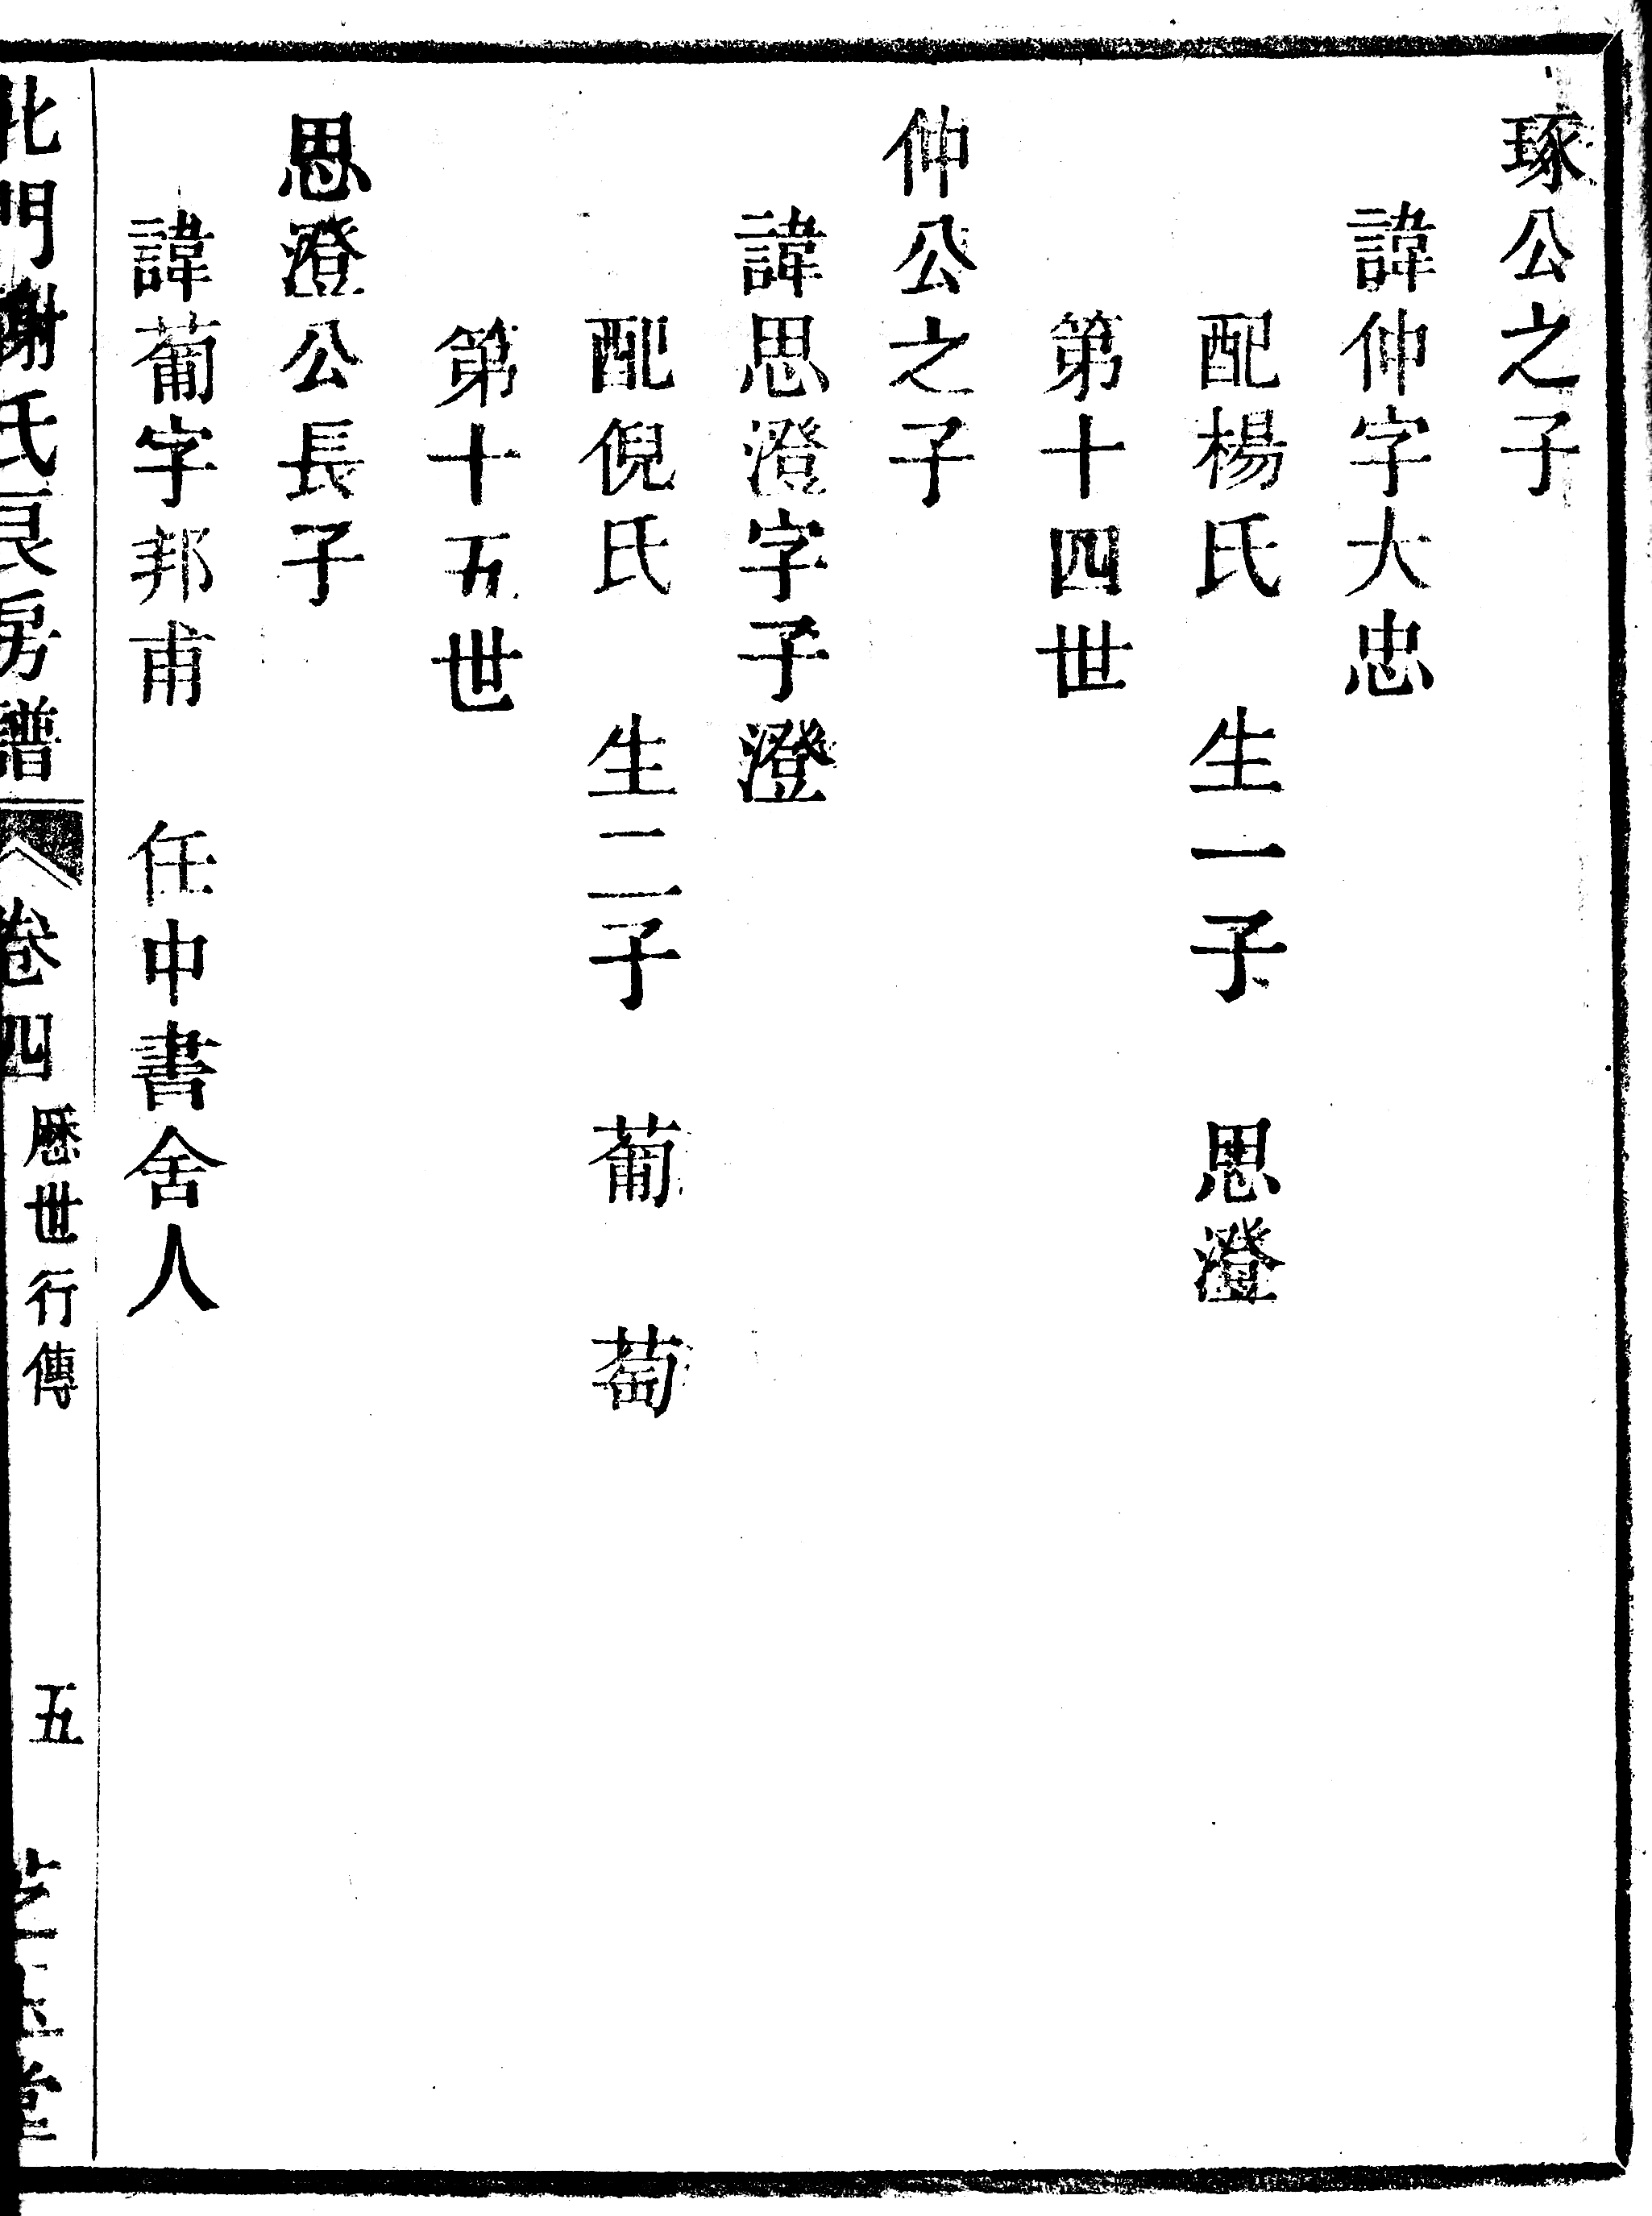 琢公之子
諱仲字大忠
配楊氏 生一子 思澄
第十四世
仲公之子
諱思澄字子澄
配倪氏 生二子 葡 萄
第十五世
思澄公長子
諱葡字邦甫 任中書舍人
北門謝氏良房譜 卷四 歷世行傳 五